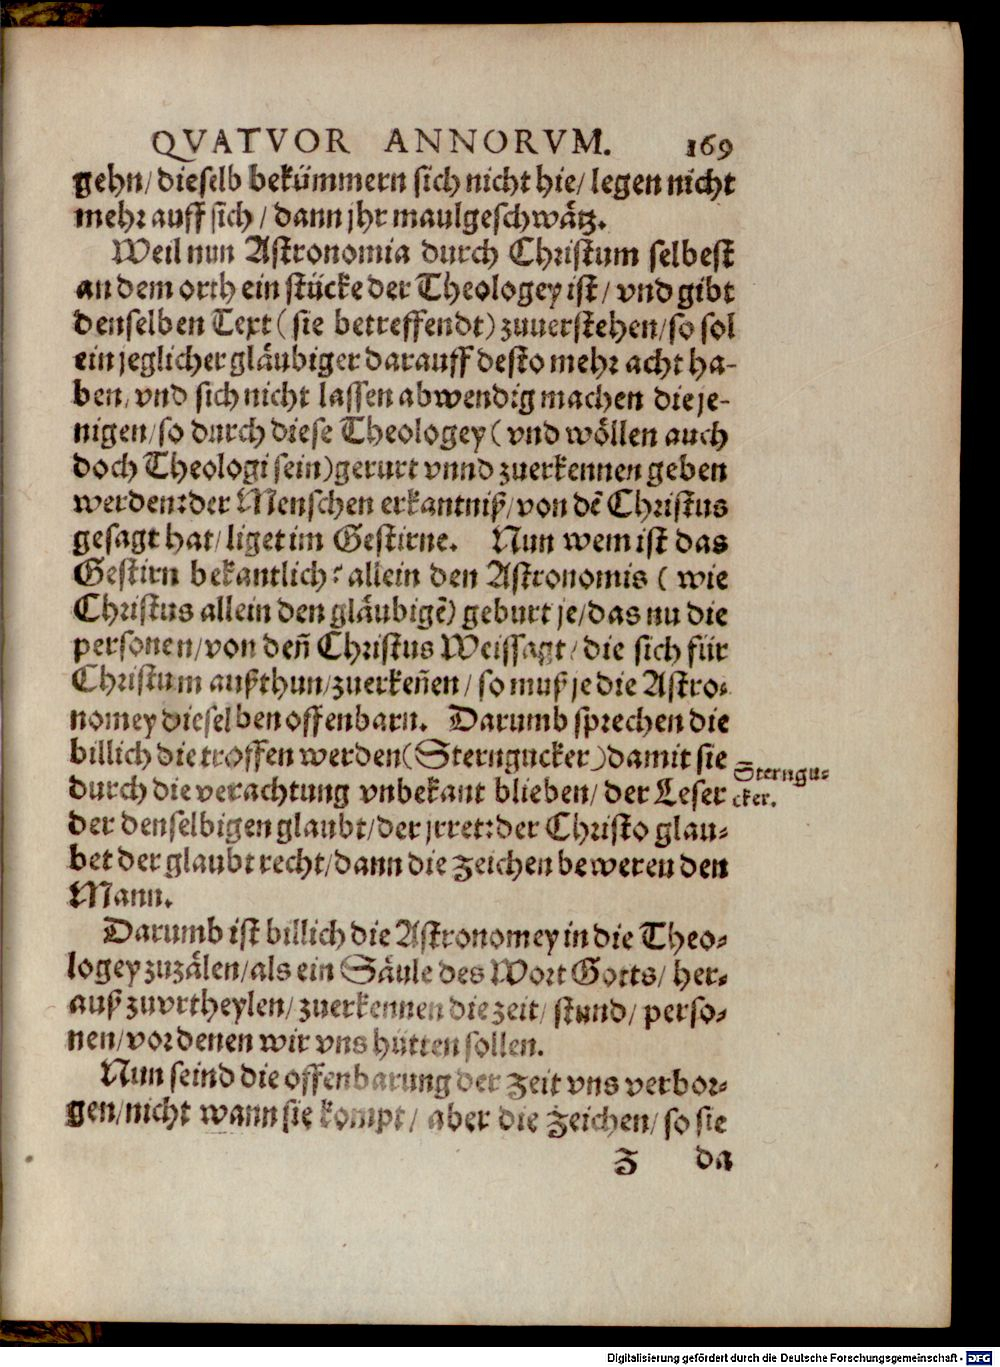 QVATVOR ANNORVM. 169
gehn/ dieselb bekümmern sich nicht hie/ legen nicht
mehr auff sich / dann jhr maulgeschwätz.
Weil nun Astronomia durch Christum selbest
an dem orth ein stücke der Theologey ist/ vnd gibt
denselben Text (sie betreffendt) zuuerstehen/ so sol
ein jeglicher gläubiger darauff desto mehr acht ha-
ben, vnd sich nicht lassen abwendig machen die je-
nigen/ so durch diese Theologey (vnd wöllen auch
doch Theologi sein) gerurt vnnd zuerkennen geben
werden: der Menschen erkantniß/ von dē Christus
gesagt hat/ liget im Gestirne. Nun wem ist das
Gestirn bekantlich? allein den Astronomis ( wie
Christus allein den gläubigē) geburt je/ das nu die
personen/ von deñ Christus Weissagt/ die sich für
Christum außthun/ zuerkeñen/ so muß je die Astro-
nomey dieselben offenbarn. Darumb sprechen die
billich die troffen werden (Sterngucker) damit sie
durch die verachtung vnbekant blieben/ der Leser
Sterngu-
cker.
der denselbigen glaubt/ der jrret: der Christo glau-
bet der glaubt recht/ dann die zeichen beweren den
Mann.
Darumb ist billich die Astronomey in die Theo-
logey zuzälen/ als ein Säule des Wort Gotts/ her-
auß zuvrtheylen/ zuerkennen die zeit/ stund/ perso-
nen/ vor denen wir vns hütten sollen.
Nun seind die offenbarung der zeit vns verbor-
gen/ nicht wann sie kompt/ aber die zeichen/ so sie
Z da
Digitalisierung gefördert durch die Deutsche Forschungsgemeinschaft - DFG